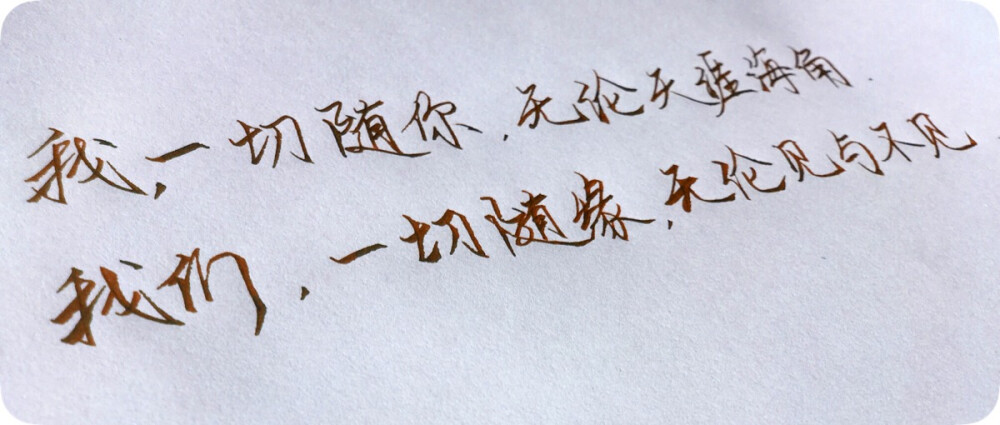 我,一切随你,无论天涯海角.
我们,一切随缘,无论见与不见